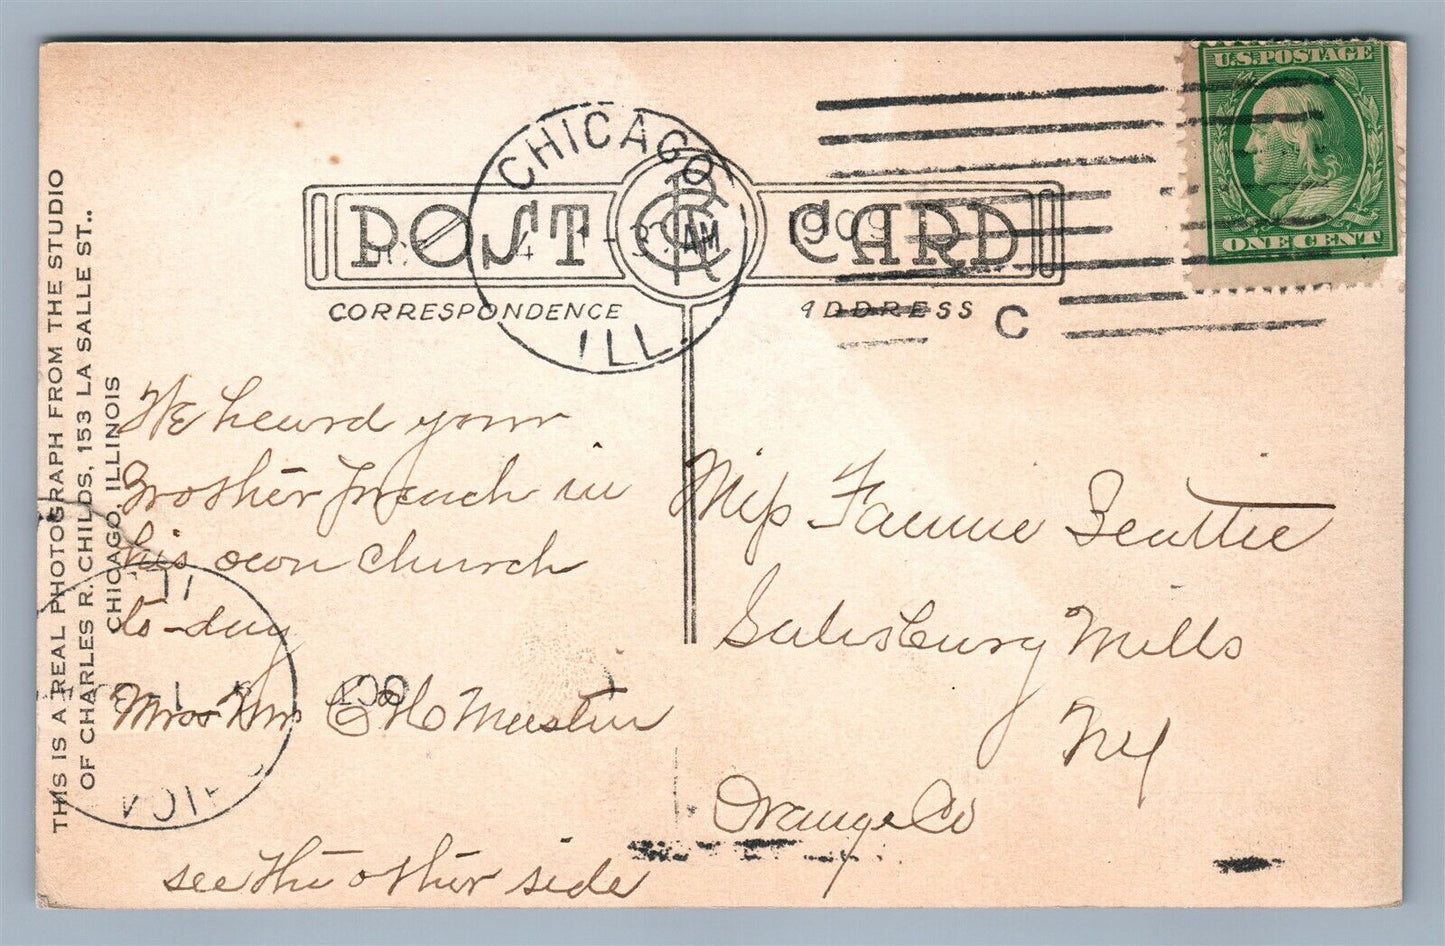 THIS IS A REAL PHOTOGRAPH FROM THE STUDIO
OF CHARLES R. CHILDS, 153 LA SALLE ST..
CHICAGO, ILLINOIS
POST CARD
CORRESPONDENCE
ADDRESS
CHICAGO
AM
1909
ILL.
C
U.S.POSTAGE
ONE CENT
We heard your
Brother French in
his own church
to-day
C H
see the other side
Miss Fannie Beattie
Salisbury Mills
NY
Orange Co
OCT